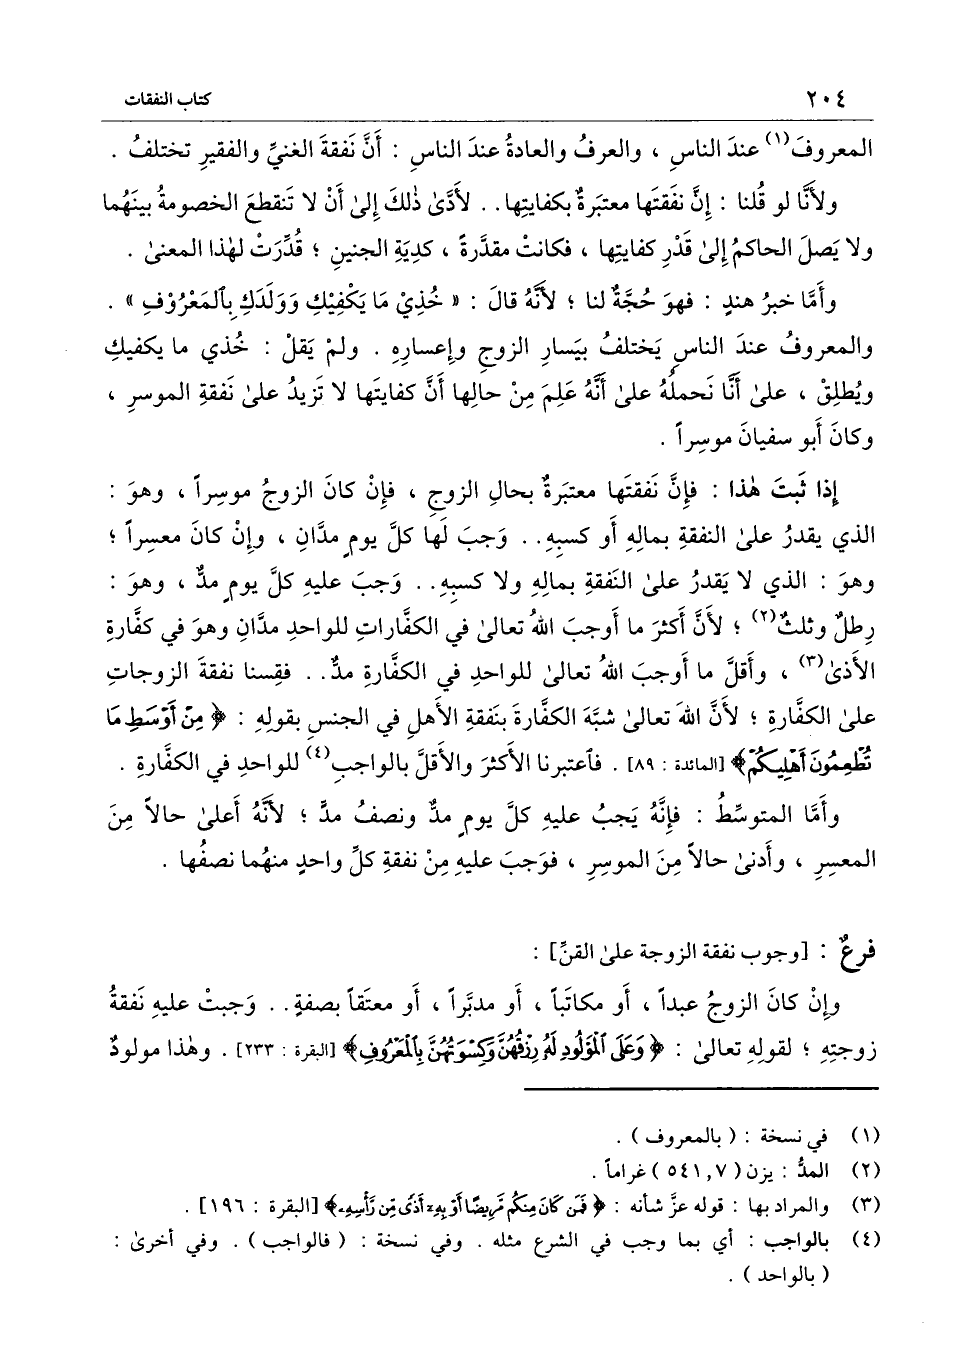 ٢٠٤
كتاب النفقات
المعروفَ(١) عندَ الناسِ ، والعرفُ والعادةُ عندَ الناسِ : أَنَّ نَفقةَ الغنيِّ والفقيرِ تختلفُ .
ولأَنَّا لو قُلنا : إِنَّ نفَقتَها معتبَرةٌ بكفايتِها . . لأَدَّىٰ ذٰلكَ إِلىٰ أَنْ لا تَنقطعَ الخصومةُ بينَهُما
ولا يَصلَ الحاكمُ إِلىٰ قَدْرِ كفايتِها ، فكانتْ مقدَّرةً ، كديَةِ الجنينِ ؛ قُدِّرَتْ لهٰذا المعنىٰ .
وأَمَّا خبرُ هندٍ : فهوَ حُجَّةٌ لنا ؛ لأَنَّهُ قالَ : « خُذِيْ مَا يَكْفِيْكِ وَوَلَدَكِ بِٱلمَعْرُوْفِ » .
والمعروفُ عندَ الناسِ يَختلفُ بيَسارِ الزوجِ وإِعسارِهِ . ولمْ يَقلْ : خُذي ما يكفيكِ
ويُطلِقْ ، علىٰ أَنَّا نَحملُهُ علىٰ أَنَّهُ عَلِمَ مِنْ حالِها أَنَّ كفايتَها لا تَزيدُ علىٰ نَفقةِ الموسرِ ،
وكانَ أَبو سفيانَ موسِراً .
إِذا ثَبتَ هٰذا : فإِنَّ نَفقتَها معتبَرةٌ بحالِ الزوجِ ، فإِنْ كانَ الزوجُ موسِراً ، وهوَ :
الذي يقدرُ علىٰ النفقةِ بمالِهِ أَو كسبِهِ . . وَجبَ لَها كلَّ يومٍ مدَّانِ ، وإِنْ كانَ معسِراً ؛
وهوَ : الذي لا يَقدرُ علىٰ النَفقةِ بمالِهِ ولا كسبِهِ . . وَجبَ عليهِ كلَّ يومٍ مدٌّ ، وهوَ :
رِطلٌ وثلثٌ(٢) ؛ لأَنَّ أَكثرَ ما أَوجبَ اللهُ تعالىٰ في الكفَّاراتِ للواحدِ مدَّانِ وهوَ في كفَّارةِ
الأَذىٰ(٣) ، وأَقلَّ ما أَوجبَ اللهُ تعالىٰ للواحدِ في الكفَّارةِ مدٌّ . . فقِسنا نفقةَ الزوجاتِ
علىٰ الكفَّارةِ ؛ لأَنَّ اللهَ تعالىٰ شبَّهَ الكفَّارةَ بنَفقةِ الأَهلِ في الجنسِ بقولِهِ : ﴿ مِنْ أَوْسَطِ مَا
تُطْعِمُونَ أَهْلِيكُمْ ﴾ [المائدة : ٨٩] . فٱعتبرنا الأَكثرَ والأَقلَّ بالواجبِ(٤) للواحدِ في الكفَّارةِ .
وأَمَّا المتوسِّطُ : فإِنَّهُ يَجبُ عليهِ كلَّ يومٍ مدٌّ ونصفُ مدٍّ ؛ لأَنَّهُ أَعلىٰ حالاً مِنَ
المعسِرِ ، وأَدنىٰ حالاً مِنَ الموسِرِ ، فوَجبَ عليهِ مِنْ نفقةِ كلِّ واحدٍ منهُما نصفُها .
فرعٌ : [وجوب نفقة الزوجة علىٰ القنِّ] :
وإِنْ كانَ الزوجُ عبداً ، أَو مكاتَباً ، أَو مدبَّراً ، أَو معتَقاً بصفةٍ . . وَجبتْ عليهِ نَفقةُ
زوجتِهِ ؛ لقولِهِ تعالىٰ : ﴿ وَعَلَى ٱلْمَوْلُودِ لَهُۥ رِزْقُهُنَّ وَكِسْوَتُهُنَّ بِٱلْمَعْرُوفِ ﴾ [البقرة : ٢٣٣] . وهٰذا مولودٌ
(١) في نسخة : ( بالمعروف ) .
(٢) المدُّ : يزن ( ٥٤١,٧ ) غراماً .
(٣) والمراد بها : قوله عزَّ شأنه : ﴿ فَمَن كَانَ مِنكُم مَّرِيضًا أَوْ بِهِۦٓ أَذًى مِّن رَّأْسِهِۦ ﴾ [البقرة : ١٩٦] .
(٤) بالواجب : أي بما وجب في الشرع مثله . وفي نسخة : ( فالواجب ) . وفي أخرىٰ :
( بالواحد ) .